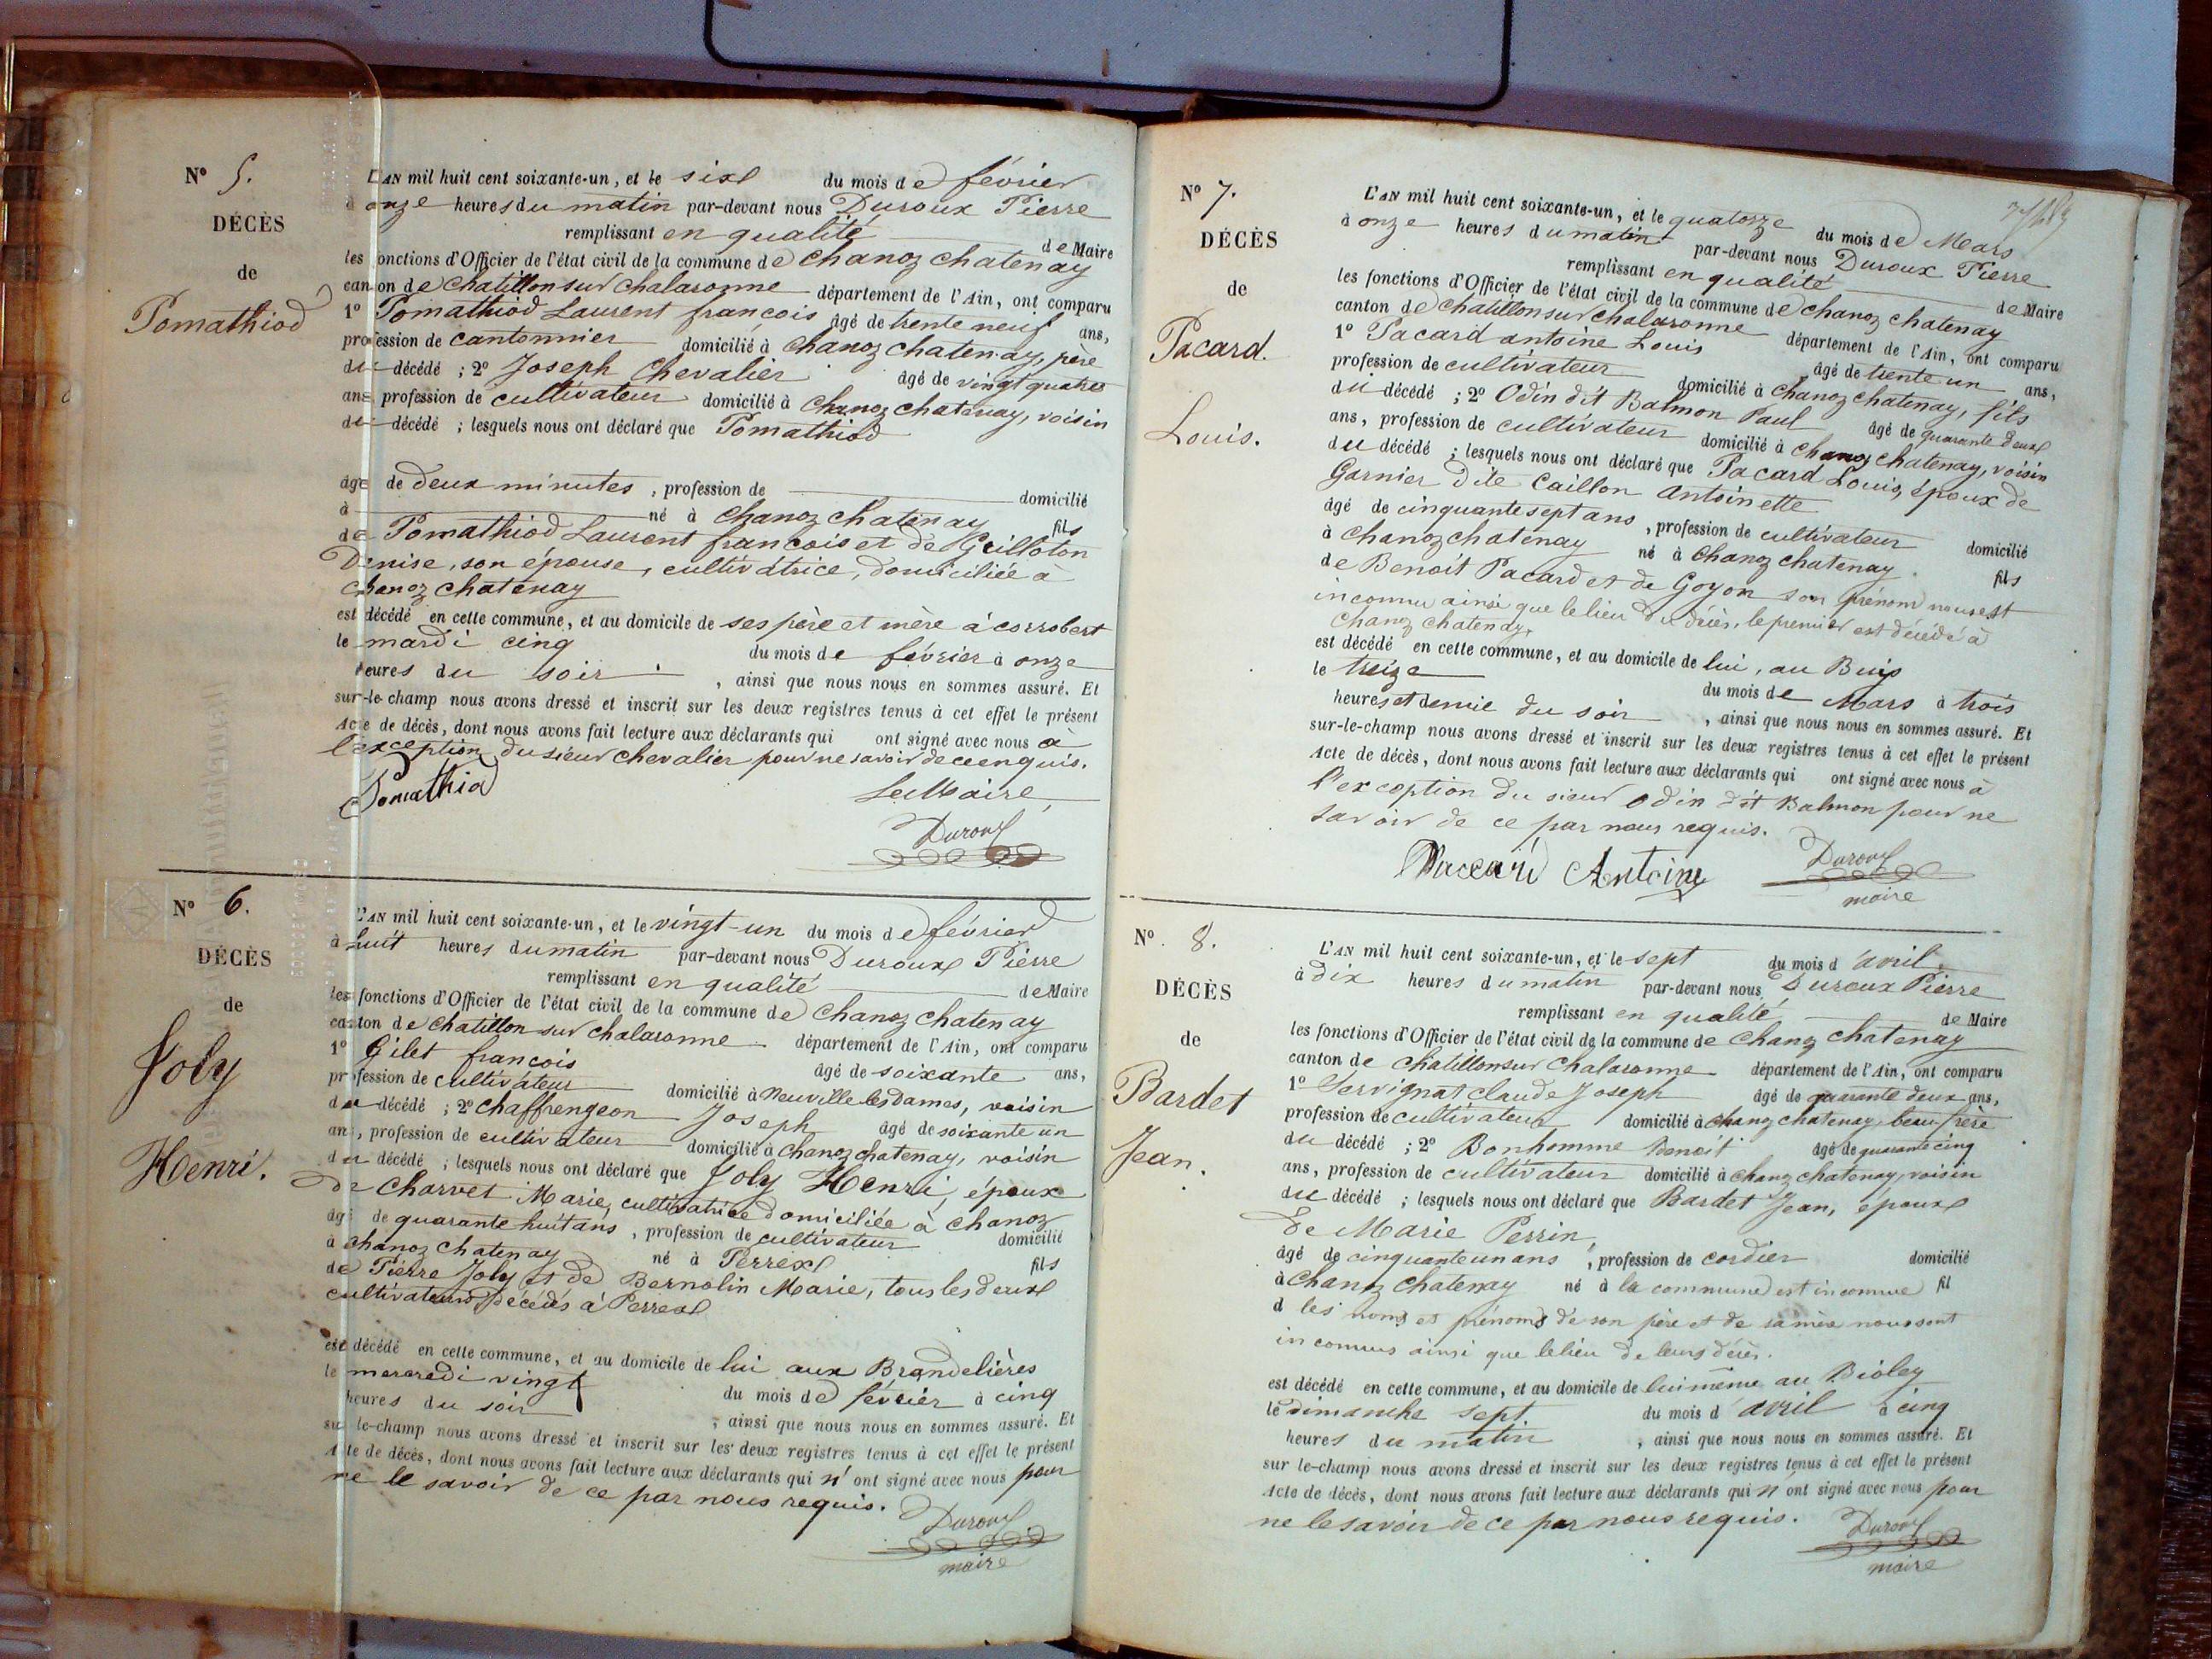 N° 5.
DÉCÈS
de
Pomathiod
L'AN mil huit cent soixante-un, et le six du mois de février
à onze heures du matin par-devant nous Duroux Pierre
remplissant en qualité de Maire
les fonctions d'Officier de l'état civil de la commune de chanoz chatenay
canton de chatillon sur chalaronne département de l'Ain, ont comparu
1° Pomathiod Laurent françois âgé de trente neuf ans,
profession de cantonnier domicilié à chanoz chatenay, père
du décédé ; 2° Joseph Chevalier âgé de vingt quatre
ans, profession de cultivateur domicilié à chanoz chatenay, voisin
du décédé ; lesquels nous ont déclaré que Pomathiod
âgé de deux minutes, profession de domicilié
à né à chanoz chatenay fils
de Pomathiod Laurent françois et de Guilloton
Denise, son épouse, cultivatrice, domiciliée à
chanoz chatenay
est décédé en cette commune, et au domicile de ses père et mère à corrobert
le mardi cinq du mois de février à onze
heures du soir, ainsi que nous nous en sommes assuré. Et
sur-le-champ nous avons dressé et inscrit sur les deux registres tenus à cet effet le présent
Acte de décès, dont nous avons fait lecture aux déclarants qui ont signé avec nous à
l'exception du sieur chevalier pour ne savoir de ce enquis.
Pomathiod Le Maire,
Duroux
N° 6.
DÉCÈS
de
Joly
Henri.
L'AN mil huit cent soixante-un, et le vingt-un du mois de février
à huit heures du matin par-devant nous Duroux Pierre
remplissant en qualité de Maire
les fonctions d'Officier de l'état civil de la commune de chanoz chatenay
canton de chatillon sur chalaronne département de l'Ain, ont comparu
1° Gilet françois âgé de soixante ans,
profession de cultivateur domicilié à Neuville les dames, voisin
du décédé ; 2° chaffrengeon Joseph âgé de soixante un
ans, profession de cultivateur domicilié à chanoz chatenay, voisin
du décédé ; lesquels nous ont déclaré que Joly Henri, époux
de Charvet Marie, cultivatrice domiciliée à chanoz
âgé de quarante huit ans, profession de cultivateur domicilié
à chanoz chatenay né à Perrex fils
de Pierre Joly et de Bernolin Marie, tous les deux
cultivateurs décédés à Perrex
est décédé en cette commune, et au domicile de lui aux Brandelières
le mercredi vingt du mois de février à cinq
heures du soir, ainsi que nous nous en sommes assuré. Et
sur le-champ nous avons dressé et inscrit sur les deux registres tenus à cet effet le présent
Acte de décès, dont nous avons fait lecture aux déclarants qui n'ont signé avec nous pour
ne le savoir de ce par nous requis.
Duroux
maire
N° 7.
DÉCÈS
de
Pacard.
Louis.
L'AN mil huit cent soixante-un, et le quatorze du mois de Mars
à onze heures du matin par-devant nous Duroux Pierre
remplissant en qualité de Maire
les fonctions d'Officier de l'état civil de la commune de chanoz chatenay
canton de chatillon sur chalaronne département de l'Ain, ont comparu
1° Pacard antoine Louis âgé de trente un ans,
profession de cultivateur domicilié à chanoz chatenay, fils
du décédé ; 2° Odin dit Balmon Paul âgé de quarante deux
ans, profession de cultivateur domicilié à chanoz chatenay, voisin
du décédé ; lesquels nous ont déclaré que Pacard Louis, époux de
Garnier dite Caillon Antoinette
âgé de cinquante sept ans, profession de cultivateur domicilié
à chanoz chatenay né à chanoz chatenay fils
de Benoit Pacard et de Goyon son prénom nous est
inconnu ainsi que le lieu du décès, le premier est décédé à
chanoz chatenay,
est décédé en cette commune, et au domicile de lui, au Buis
le treize du mois de Mars à trois
heures et demie du soir, ainsi que nous nous en sommes assuré. Et
sur-le-champ nous avons dressé et inscrit sur les deux registres tenus à cet effet le présent
Acte de décès, dont nous avons fait lecture aux déclarants qui ont signé avec nous à
l'exception du sieur Odin dit Balmon pour ne
savoir de ce par nous requis.
Paccard Antoine Duroux
maire
N° 8.
DÉCÈS
de
Bardet
Jean.
L'AN mil huit cent soixante-un, et le sept du mois d'avril
à dix heures du matin par-devant nous Duroux Pierre
remplissant en qualité de Maire
les fonctions d'Officier de l'état civil de la commune de chanoz chatenay
canton de chatillon sur chalaronne département de l'Ain, ont comparu
1° Servignat claude Joseph âgé de quarante deux ans,
profession de cultivateur domicilié à chanoz chatenay, beau frère
du décédé ; 2° Bonhomme Benoit âgé de quarante cinq
ans, profession de cultivateur domicilié à chanoz chatenay, voisin
du décédé ; lesquels nous ont déclaré que Bardet Jean, époux
de Marie Perrin,
âgé de cinquante un ans, profession de cordier domicilié
à chanoz chatenay né à la commune est inconnue fil
d les noms et prénoms de son père et de sa mère nous sont
inconnus ainsi que le lieu de leurs décès.
est décédé en cette commune, et au domicile de lui même au Bioley
le dimanche sept du mois d'avril à cinq
heures du matin, ainsi que nous nous en sommes assuré. Et
sur le-champ nous avons dressé et inscrit sur les deux registres tenus à cet effet le présent
Acte de décès, dont nous avons fait lecture aux déclarants qui n'ont signé avec nous pour
ne le savoir de ce par nous requis.
Duroux
maire